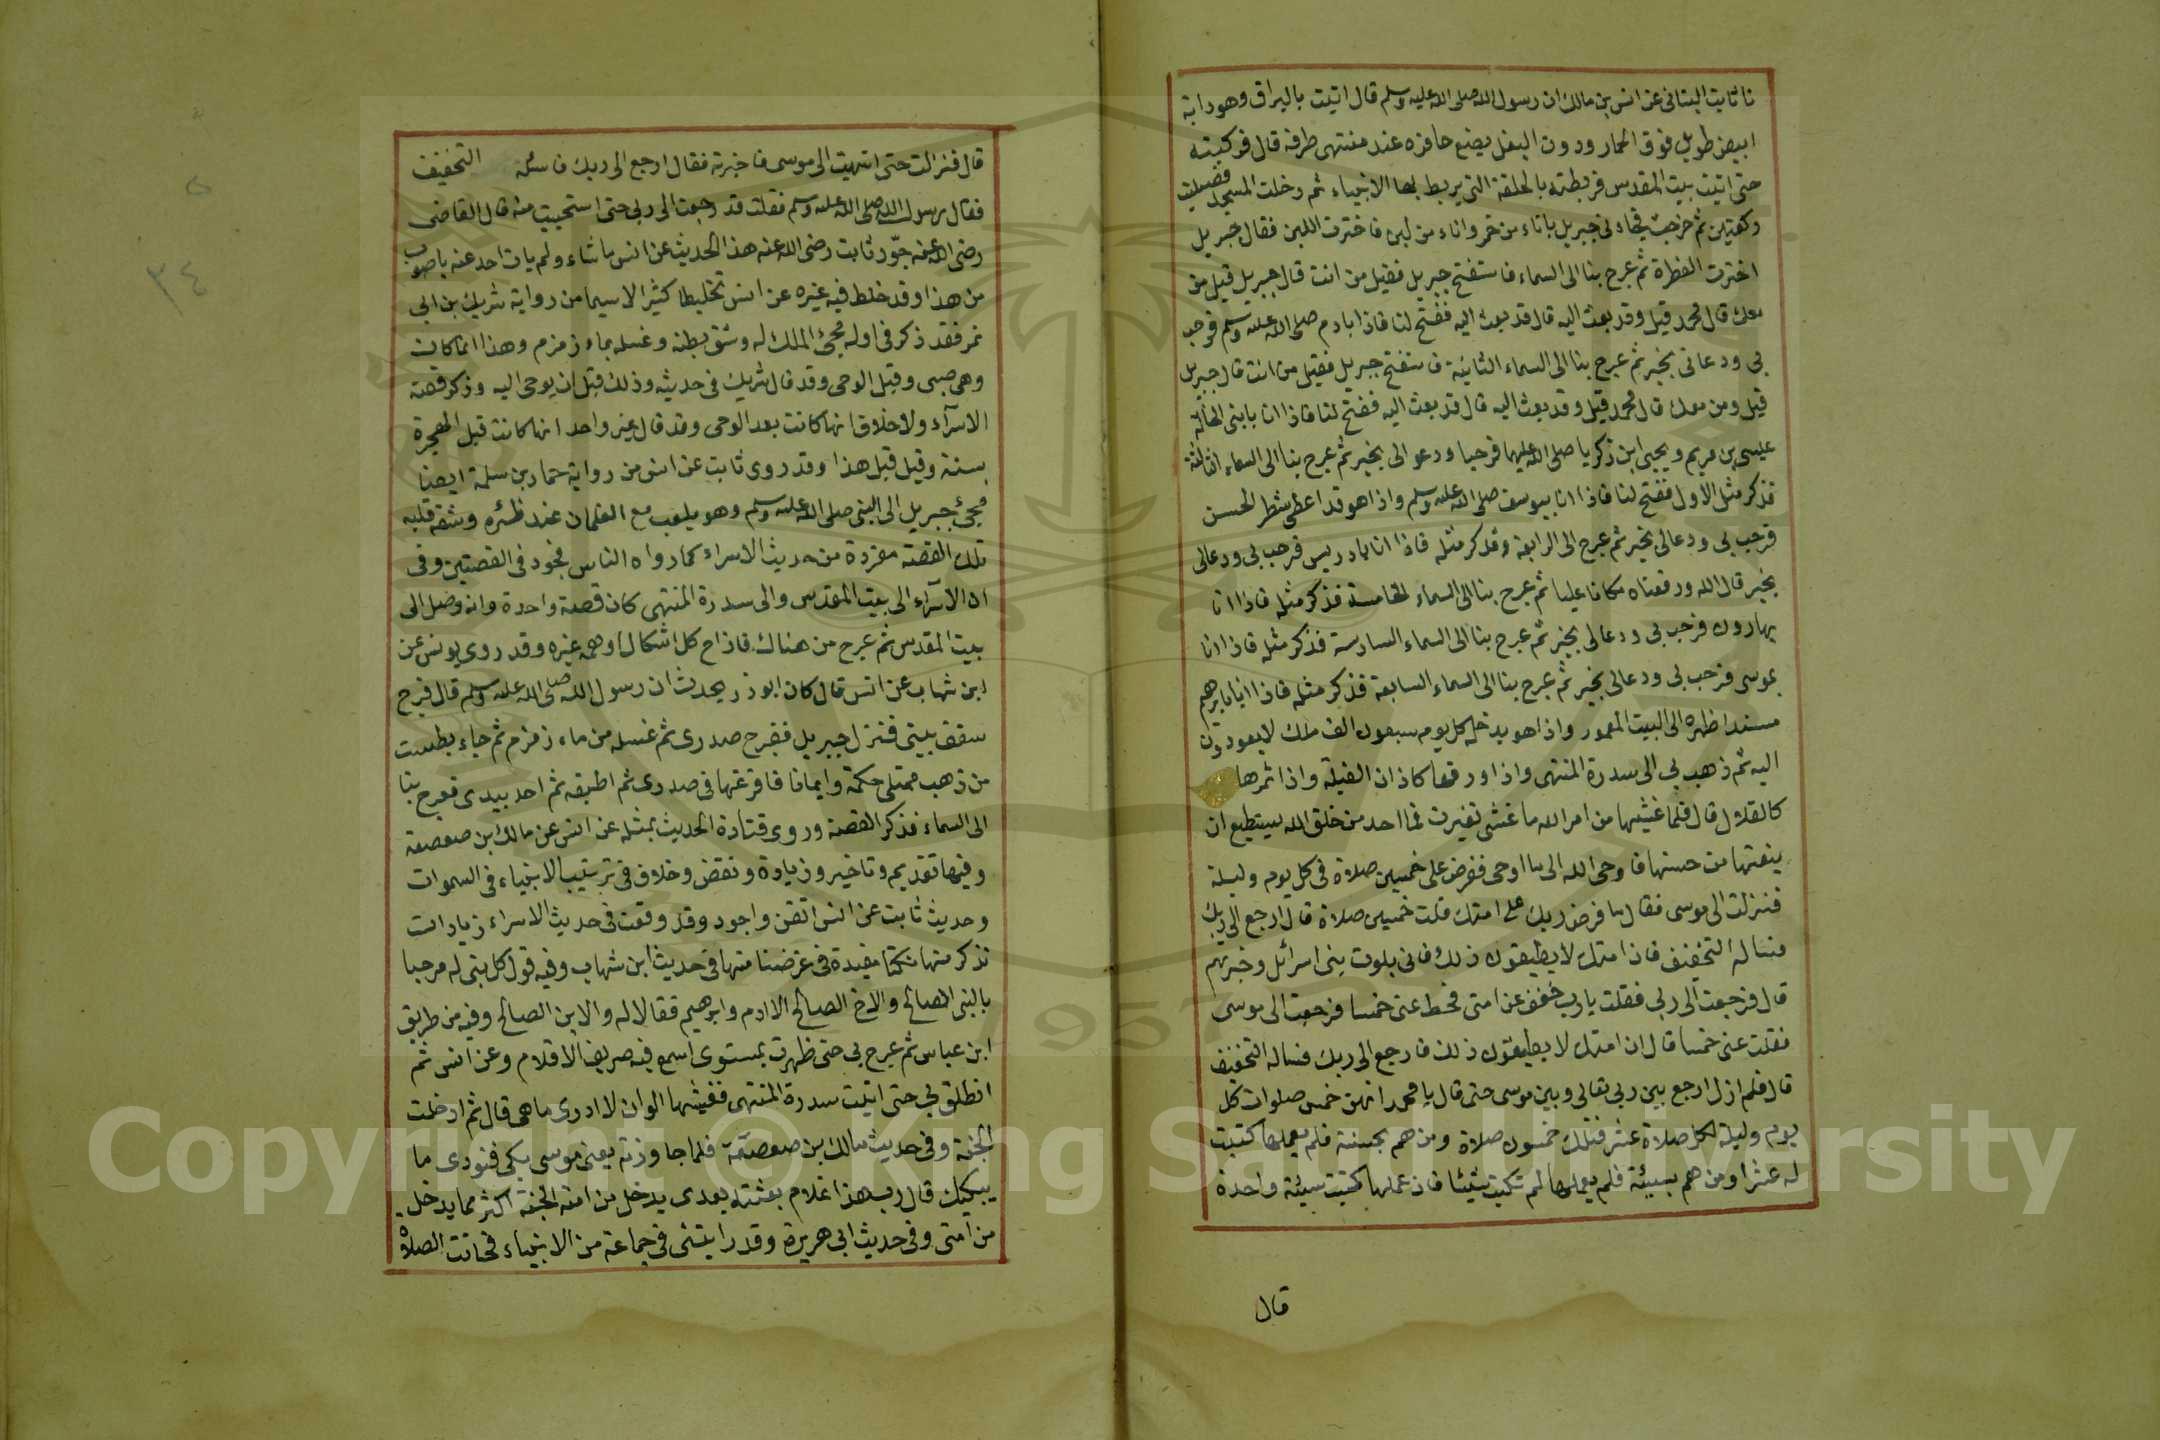 نا ثابت البناني عن انس بن مالك ان رسول الله صلى الله عليه وسلم قال اتيت بالبراق وهو دابة
ابيض طويل فوق الحمار ودون البغل يضع حافره عند منتهى طرفه قال فركبته
حتى اتيت بيت المقدس فربطته بالحلقة التي يربط بها الانبياء ثم دخلت المسجد فصليت
ركعتين ثم خرجت فجاءني جبريل باناء من خمر واناء من لبن فاخترت اللبن فقال جبريل
اخترت الفطرة ثم عرج بنا الى السماء فاستفتح جبريل فقيل من انت قال جبريل قيل من
معك قال محمد قيل وقد بعث اليه قال قد بعث اليه ففتح لنا فاذا بادم صلى الله عليه وسلم فرحب
بي ودعا لي بخير ثم عرج بنا الى السماء الثانية فاستفتح جبريل فقيل من انت قال جبريل
قيل ومن معك قال محمد قيل وقد بعث اليه قال قد بعث اليه ففتح لنا فاذا انا بابني الخالة
عيسى بن مريم ويحيى ابن زكريا صلى الله عليهما فرحبا ودعوا لي بخير ثم عرج بنا الى السماء الثالثة
فذكر مثل الاول ففتح لنا فاذا انا بيوسف صلى الله عليه وسلم واذا هو قد اعطى شطر الحسن
فرحب بي ودعا لي بخير ثم عرج الى الرابعة وذكر مثله فاذا انا بادريس فرحب بي ودعا لي
بخير قال الله ورفعناه مكانا عليا ثم عرج بنا الى السماء الخامسة فذكر مثله فاذا انا
بهارون فرحب بي ودعا لي بخير ثم عرج بنا الى السماء السادسة فذكر مثله فاذا انا
بموسى فرحب بي ودعا لي بخير ثم عرج بنا الى السماء السابعة فذكر مثله فاذا انا بابرهيم
مسندا ظهره الى البيت المعمور واذا هو يدخله كل يوم سبعون الف ملك لا يعودون
اليه ثم ذهب بي الى سدرة المنتهى واذا ورقها كاذان الفيلة واذا ثمرها
كالقلال قال فلما غشيها من امر الله ما غشي تغيرت فما احد من خلق الله يستطيع ان
ينعتها من حسنها فاوحى الله الي ما اوحى ففرض علي خمسين صلاة في كل يوم وليلة
فنزلت الى موسى فقال ما فرض ربك على امتك قلت خمسين صلاة قال ارجع الى ربك
فساله التخفيف فاذا امتك لا يطيقون ذلك فاني بلوت بني اسرائل وخبرتهم
قال فرجعت الى ربي فقلت يا رب خفف عن امتي فحط عني خمسا فرجعت الى موسى
فقلت عني خمسا قال ان امتك لا يطيقون ذلك فارجع الى ربك فساله التخفيف
قال فلم ازل ارجع بين ربي تعالى وبين موسى حتى قال يا محمد انهن خمس صلوات كل
يوم وليلة لكل صلاة عشر فتلك خمسون صلاة ومن هم بحسنة فلم يعملها كتبت
له عشرا ومن هم بسيئة فلم يعملها لم تكتب شيئا فان عملها كتبت سيئة واحدة
قال
قال فنزلت حتى انتهيت الى موسى فاخبرته فقال ارجع الى ربك فاسئله التخفيف
فقال رسول الله صلى الله عليه وسلم فقلت قد رجعت الى ربي حتى استحييت منه قال القاضي
رضي الله عنه جوّد ثابت رضي الله عنه هذا الحديث عن انس ما شاء ولم يات احد عنه باصوب
من هذا وقد خلط فيه غيره عن انس تخليطا كثيرا لا سيما من رواية شريك بن ابي
نمر فقد ذكر في اوله مجئ الملك له وشق بطنه وغسله بماء زمزم وهذا انما كان
وهو صبي وقبل الوحي وقد قال شريك في حديثه وذلك قبل ان يوحى اليه وذكر قصة
الاسرآء ولا خلاف انها كانت بعد الوحي وقد قال غير واحد انها كانت قبل الهجرة
بسنة وقيل قبل هذا وقد روى ثابت عن انس من رواية حماد بن سلمة ايضا
مجئ جبريل الى النبي صلى الله عليه وسلم وهو يلعب مع الغلمان عند ظئره وشقه قلبه
تلك القصة مفردة من حديث الاسراء كما رواه الناس فجود في القصتين وفي
ان الاسرآء الى بيت المقدس والى سدرة المنتهى كان قصة واحدة وانه وصل الى
بيت المقدس ثم عرج من هناك فازاح كل اشكال اوهمه غيره وقد روى يونس عن
ابن شهاب عن انس قال كان ابو ذر يحدث ان رسول الله صلى الله عليه وسلم قال فرج
سقف بيتي فنزل جبريل ففرج صدري ثم غسله من ماء زمزم ثم جاء بطست
من ذهب ممتلئ حكمة وايمانا فافرغها في صدري ثم اطبقه ثم اخذ بيدي فعرج بنا
الى السماء فذكر القصة وروى قتادة الحديث بمثله عن انس عن مالك بن صعصعة
وفيها تقديم وتاخير وزيادة ونقص وخلاف في ترتيب الانبياء في السموات
وحديث ثابت عن انس اتقن واجود وقد وقعت في حديث الاسراء زيادات
نذكر منها نكتا مفيدة في غرضنا منها في حديث ابن شهاب وفيه قول كل نبي له مرحبا
بالنبي الصالح والاخ الصالح الا ادم وابرهيم فقالا له والابن الصالح وفيه من طريق
ابن عباس ثم عرج بي حتى ظهرت بمستوى اسمع فيه صريف الاقلام وعن انس ثم
انطلق بي حتى اتيت سدرة المنتهى فغشيها الوان لا ادري ما هي قال ثم ادخلت
الجنة وفي حديث مالك بن صعصعة فلما جاوزته يعني موسى بكى فنودي ما
يبكيك قال رب هذا غلام بعثته بعدي يدخل من امته الجنة اكثر مما يدخل
من امتي وفي حديث ابي هريرة وقد رايتني في جماعة من الانبياء فحانت الصلاة
٣٤
Copyright © King Saud University
1957